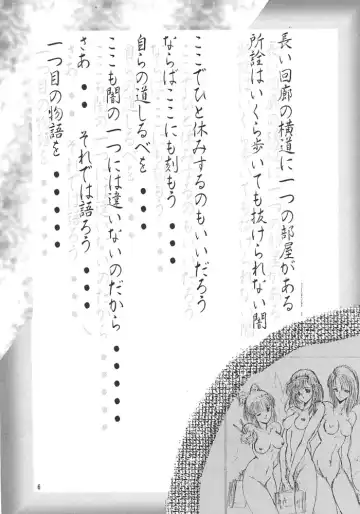 長い回廊の横道に一つの部屋がある
所詮はいくら歩いても抜けられない闇
ここでひと休みするのもいいだろう
ならばここにも刻もう・・・
自らの道しるべを・・・・・
ここも闇の一つには違いないのだから・・・・・
さあ・・それでは語ろう・・・
一つ目の物語を・・・・・
6